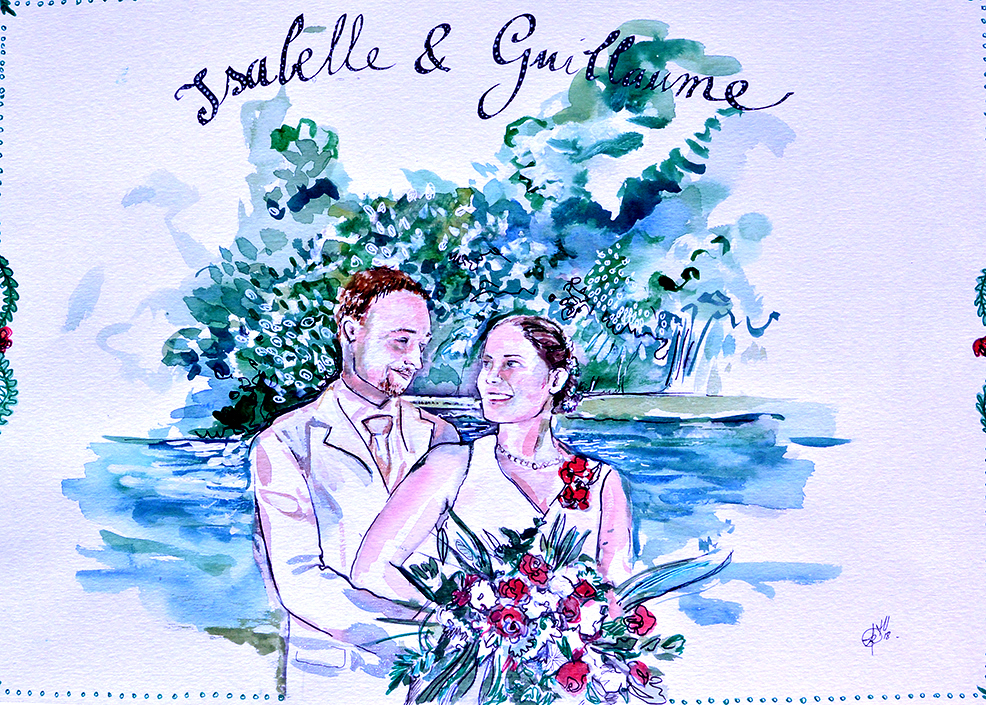 Isabelle & Guillaume